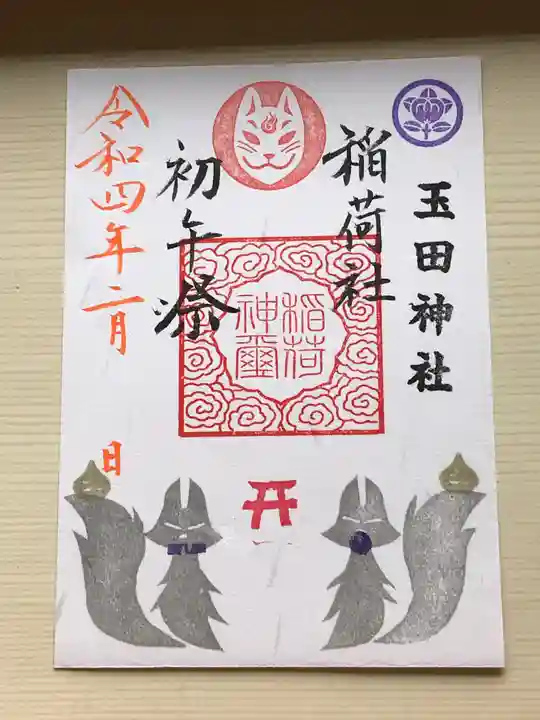 玉田神社
稲荷社
初午祭
令和四年二月 日
稲荷
神璽